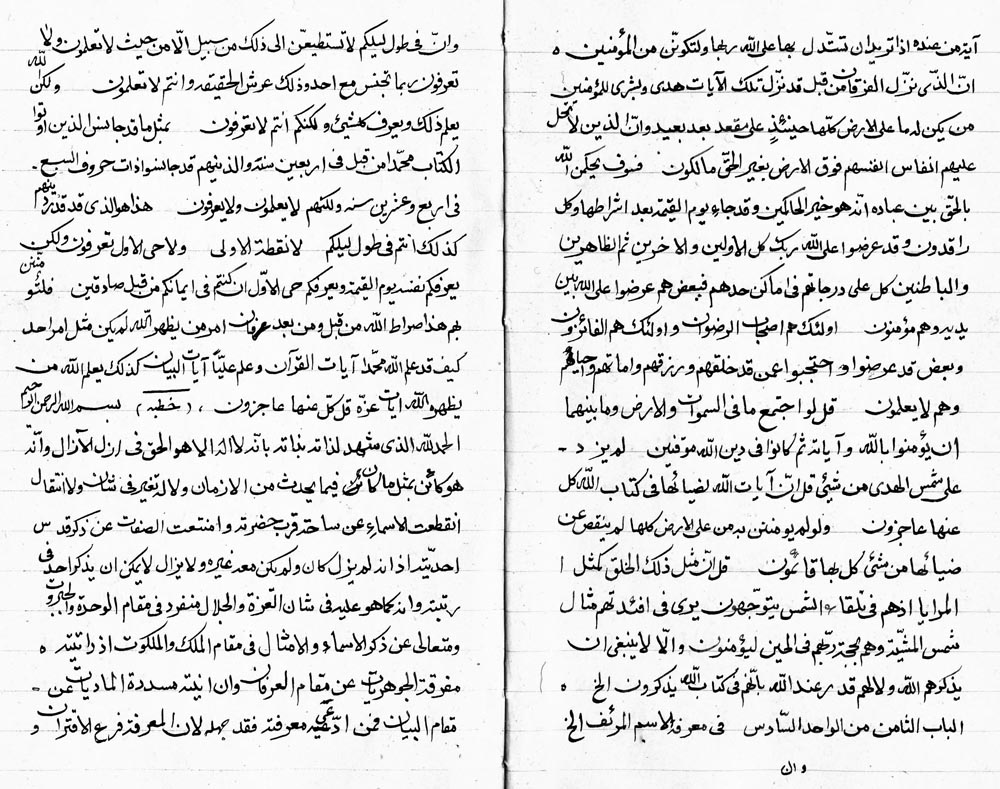 آية من عنده اذا تريد ان تستدل بها على الله ربها ولتكونن من المؤمنين ه
ان الذى نزل الفرقان من قبل قد نزل تلك الآيات هدى وبشرى للمؤمنين
من يكن له ما على الارض كلها حينئذ على مقعد بعد بعيد وان الذين لا تحل
عليهم انفاس انفسهم فوق الارض بغير الحق مالكون فسوف يحكمن الله
بالحق بين عباده انه هو خير الحاكمين وقد جاء يوم القيمة بعد اشراطها وكل
راقدون وقد عرضوا على الله ربك كل الاولين والاخرين ثم الظاهرين
والباطنين كل على درجاتهم فى اماكن حدهم فبعض هم عرضوا على الله بين
يديه وهم مؤمنون اولئك هم اصحاب الرضوان واولئك هم الفائزون
وبعض قد عرضوا واحتجبوا عمن قد خلقهم ورزقهم واماتهم واحياهم
وهم لا يعلمون قل لو اجتمع ما فى السموات والارض وما بينهما
ان يؤمنوا بالله وآياته ثم كانوا فى دين الله موقنين لم يزد -
على شمس الهدى من شىء قل ان آيات الله لضيائها فى كتاب الله كل
عنها عاجزون ولو لم يومنن به من على الارض كلها لم ينقص عن
ضيائها من شىء كل بها قائمون قل ان مثل ذلك الخلق كمثل ا
المرايا اذ هم فى تلقاء الشمس يتوجهون يرى فى افئدتهم مثال
شمس المشية وهم بحجة ربهم فى الحين ليؤمنون والا لا ينبغى ان
يذكرهم الله ولا لهم قدر عند الله بانهم فى كتاب الله يذكرون الخ ه
الباب الثامن من الواحد السادس فى معرفة الاسم المؤلف الخ
و ان
وان فى طول ليلكم لا تستطيعن الى ذلك من سبيل الا من حيث لا تعلمون ولا
تعرفون ربما تجنس مع احد وذلك عرش الحقيقه وانتم لا تعلمون ولكن الله
يعلم ذلك ويعرف كلشىء ولكنكم انتم لا تعرفون بمثل ما قد جانسوا الذين اوتوا
الكتاب محمدا من قبل فى اربعين سنة والذينهم قد جانسوا ذات حروف السبع -
فى اربع وعشرين سنه ولكنهم لا يعلمون ولا يعرفون هذا هو الذى قد قدر دينهم
كذلك انتم فى طول ليلكم لا نقطة الاولى ولا حى الاول تعرفون ولكن
يعرفكم نفسه يوم القيمة ويعرفكم حى الاول ان كنتم فى ايمانكم من قبل صادقين فلتئومنن
بهم هذا صراط الله من قبل ومن بعد عرفان امر من يظهر الله لم يكن مثل امر احد
كيف قد علم الله محمدا آيات القرآن وعلم عليا آيات البيان كذلك يعلم الله من
يظهره الله آيات عزه قل كل عنها عاجزون ، ( خطبه ) بسم الله الرحمن الرحيم
الحمد لله الذى شهد لذاته بذاته بانه لا اله الا هو الحق فى ازل الآزال وانه
هو كائن بمثل ما كان فيما يحدث من الازمان ولا له تغير فى شان ولا انتقال
انقطعت الاسماء عن ساحة قرب حضرته وامتنعت الصفات عن ذكر قدس
احديته اذ انه لم يزل كان ولم يكن معه غيره ولا يزال لا يمكن ان يذكر احد فى
رتبته وانه كما هو عليه فى شان العزة والجلال منفرد فى مقام الوحدة والجبروت
ومتعالى عن ذكر الاسماء والامثال فى مقام الملك والملكوت اذ انيته ه
مفرقة الجوهريات عن مقام العرفان وان انيته مسددة الماديات عن -
مقام البيان فمن ادعى معرفته فقد جهله لان المعرفة فرع الاقتران و